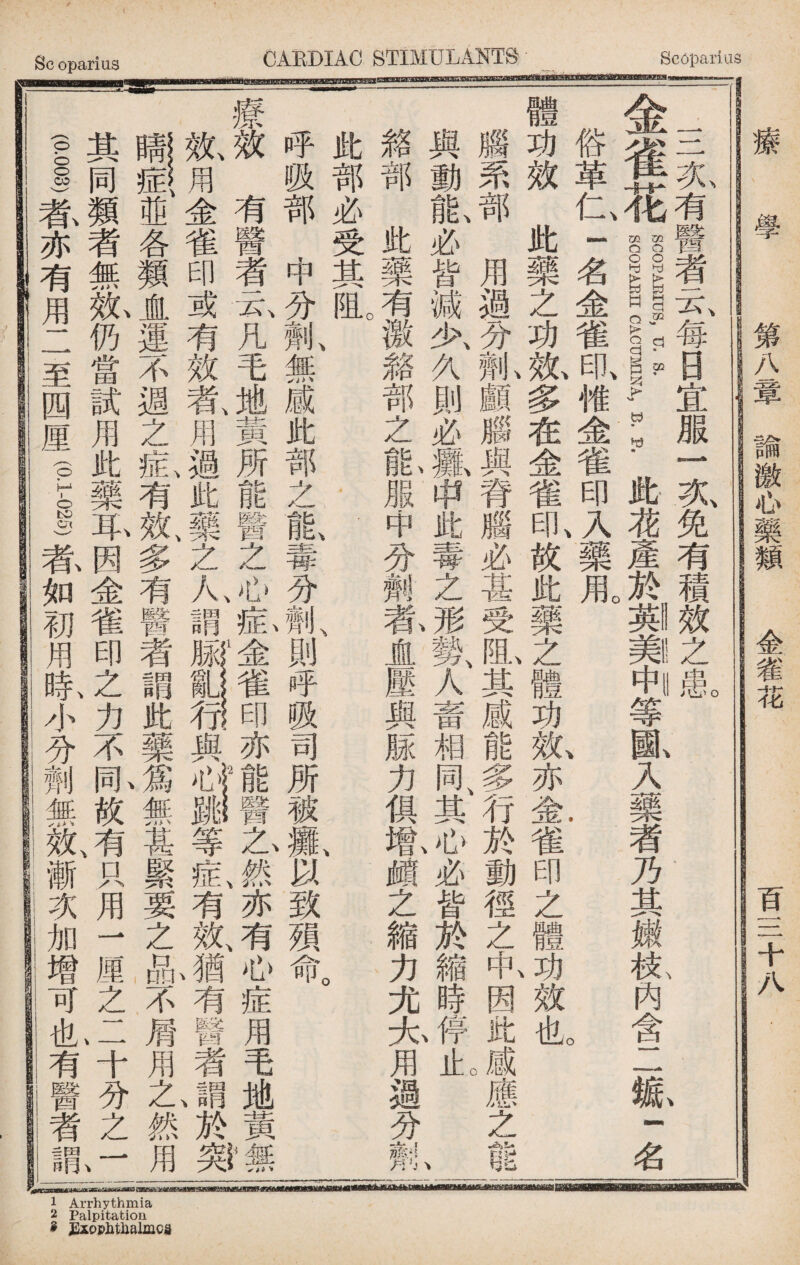 Scoparius
CARDIAC STIMULANTS
Scoparius
療學 第八章 論激心藥類 金雀花 百三十八
三次、有醫者云、每日宜服一次、免有積效之患。
金雀花 SCOPARIUS, U. S. SCOPARII CACUMINA, B. P. 此花產於英美中等國、入藥者乃其嫩枝、內含二䗪、一名
俗革仁、一名金雀印、惟金雀印入藥用。
體功效 此藥之功效、多在金雀印、故此藥之體功效、亦金雀印之體功效也。
腦系部 用過分劑、顱腦與脊腦必甚受阻、其感能多行於動徑之中、因此感應之能
與動能、必皆減少、久則必癱、中此毒之形勢、人畜相同、其心必皆於縮時停止。
絡部 此藥有激絡部之能、服中分劑者、血壓與脉力俱增、衊之縮力尤大、用過分劑、
此部必受其阻。
呼吸部 中分劑、無感此部之能、毒分劑、則呼吸司所被癱、以致殞命。
療效 有醫者云、凡毛地黃所能醫之心症、金雀印亦能醫之、然亦有心症用毛地黃無
效、用金雀印或有效者、用過此藥之人、謂脉亂行與心跳等症、有效、猶有醫者謂於突
睛症並各類血運不週之症、有效、多有醫者謂此藥爲無甚緊要之品、不屑用之、然用
其同類者無效、仍當試用此藥耳、因金雀印之力不同、故有只用一厘之二十分之一
(0.003)者、亦有用二至四厘(0.1-025)者、如初用時、小分劑無效、漸次加增可也、有醫者謂、
1 Arrhythmia
2 Palpitation
3 Exophthalmos